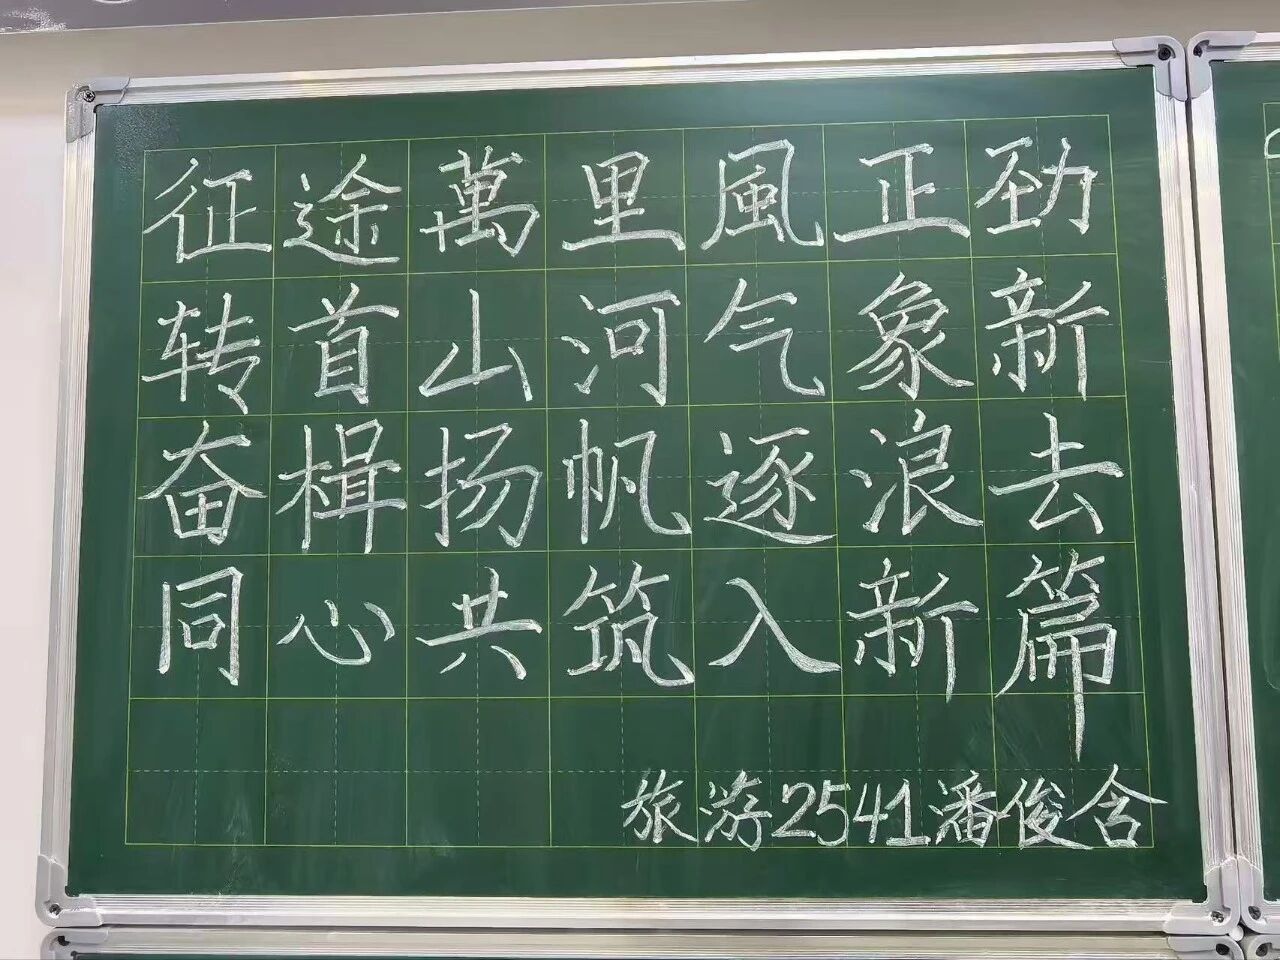 征途萬里風正劲
转首山河气象新
奋楫扬帆逐浪去
同心共筑入新篇
旅游2541潘俊含